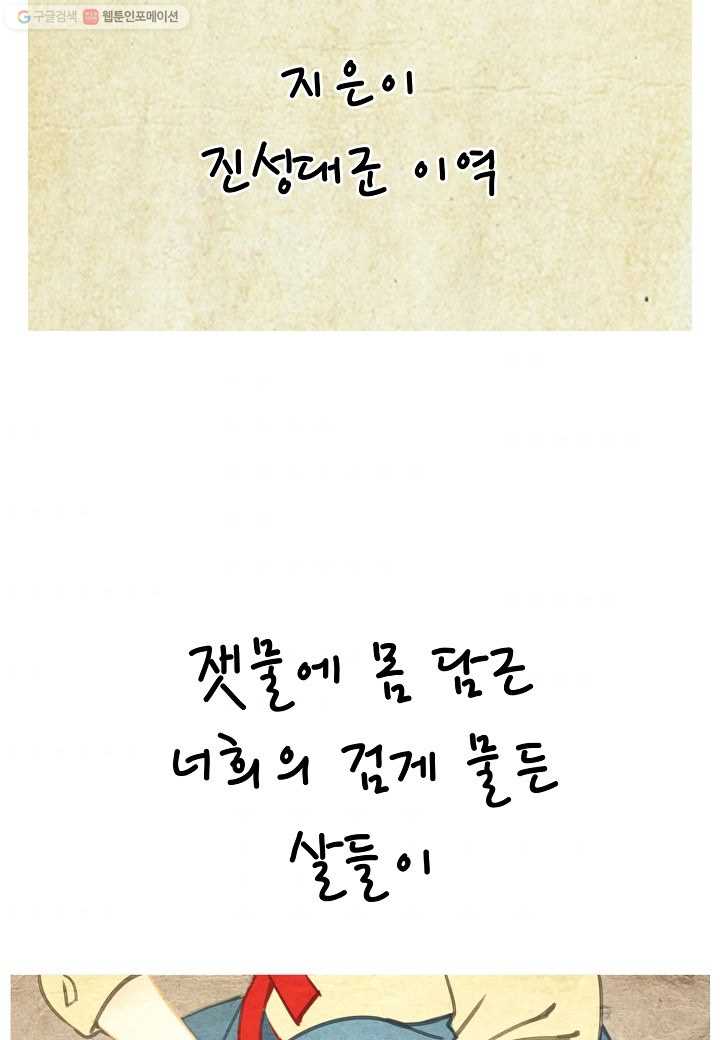 구글검색 웹툰인포메이션
지은이
진성대군 이역
잿물에 몸 담근
너희의 검게 물든
살들이